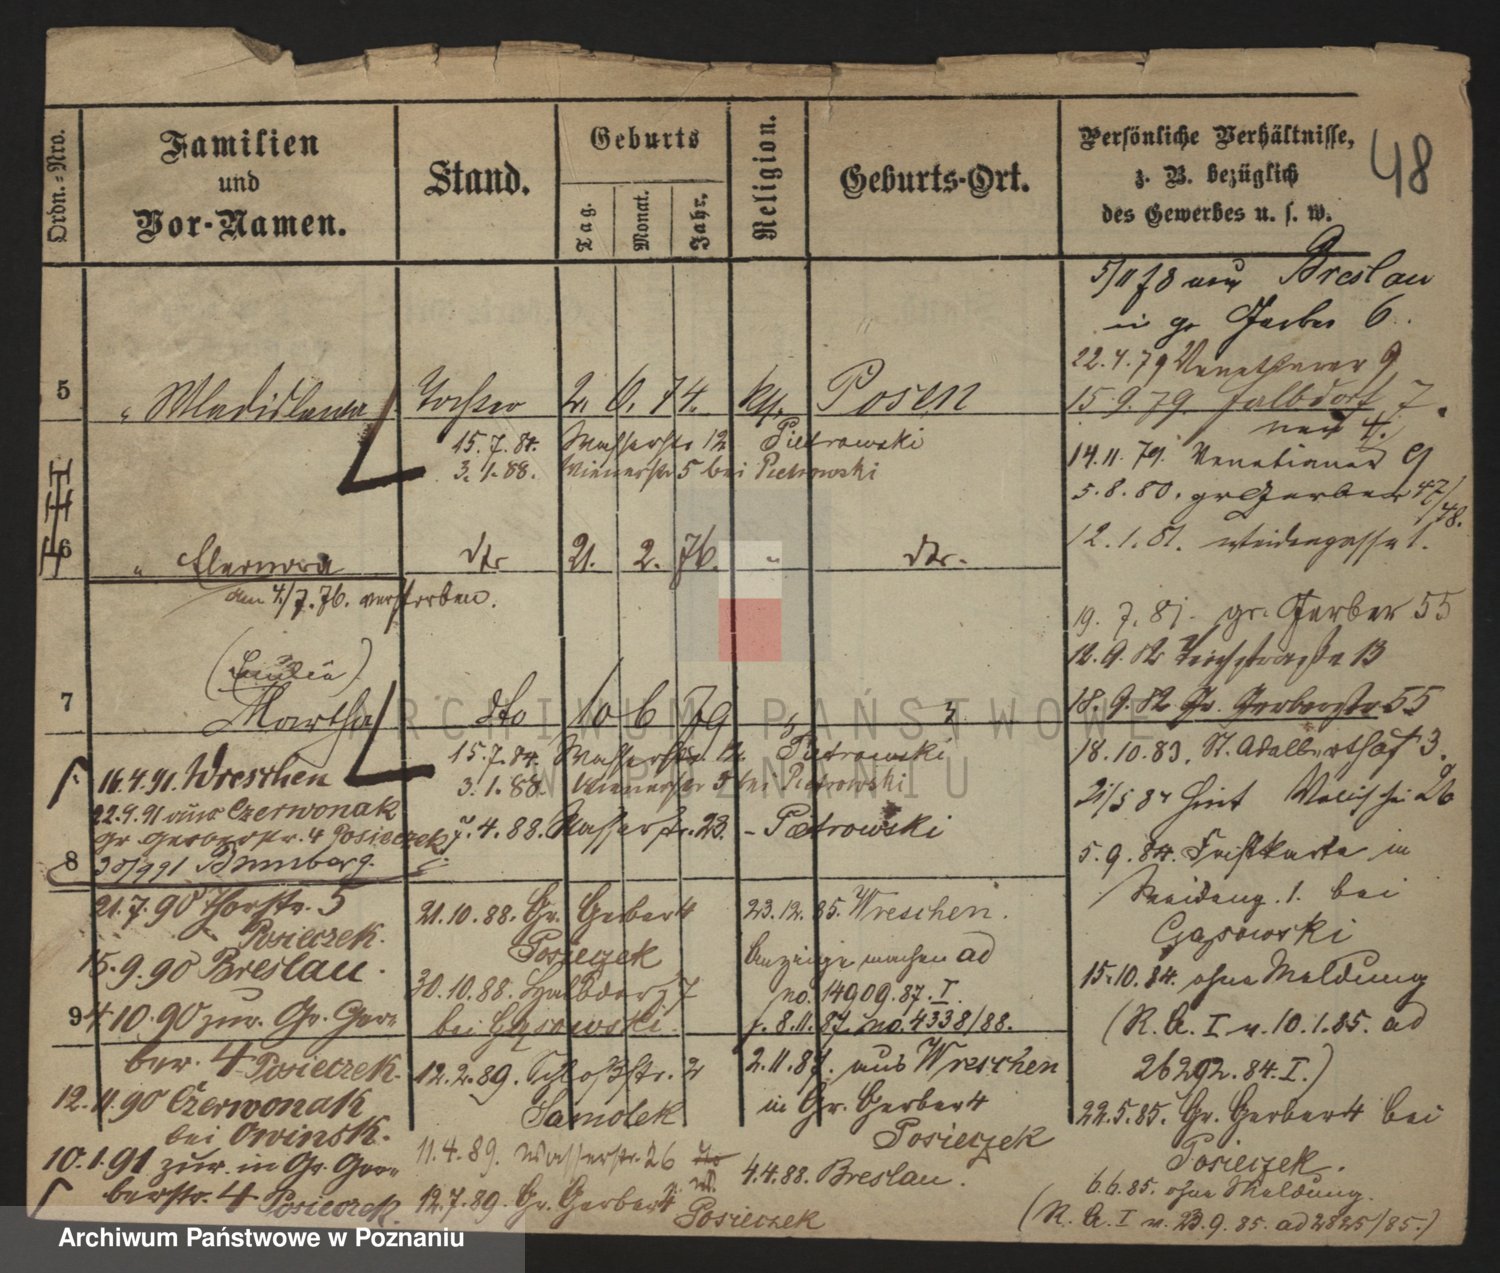 48
Ordn.-Nro.
Familien
und
Vor-Namen.
Stand.
Geburts
Tag.
Monat.
Jahr.
Religion.
Geburts-Ort.
Persönliche Verhältnisse,
z. B. bezüglich
des Gewerbes u. s. w.
5/11 78 aus Breslau
in gr Gerber 6.
22.4.79 Venetianer 9
15.9.79. Halbdorf 7.
14.11.79. Venetianer 9
5.8.80. gr Gerber 47/48.
12.1.81. Weidengasse 1.
19.7.81. gr. Gerber 55
12.9.82 Teichstraße 13
18.9.82 Gr. Gerberstr 55
18.10.83. St. Adalberthof 3.
21/5 84 Hint Wallischei 26
5.9.84. in
Weideng. 1. bei
Gąsowski
15.10.84. ohne Meldung
(R. A. I v. 10.1.85. ad
26292.84.I.)
22.5.85. Gr. Gerber 4 bei
Posieczek.
6.6.85. ohne Meldung.
(R. A. I v. 23.9.85. ad 2825/85.)
5 " Wladislawa Tochter 2. 6. 74. kth. Posen
15.7.84. Wasserstr 12 Pietrowski
3.1.88. Wienerstr 5 bei Pietrowski
6 " Eleonora dto 21. 2. 76. " dto.
am 4./7.76. verstorben.
7 Martha dto 10 6 79
15.7.84. Wasserstr. 12 Pietrowski
3.1.88. Wienerstr 5 bei Pietrowski
7.4.88. Wasserstr. 23. - Pietrowski
16.4.91. Wreschen
22.9.91 aus Czerwonak
gr Gerberstr. 4 Posieczek
8 30/9 91 Bromberg.
21.7.90 Thorstr. 5
Posieczek.
15.9.90 Breslau.
9 4.10.90 zur. Gr. Ger-
ber. 4 Posieczek.
12.11.90 Czerwonak
bei Owinsk.
10.1.91 zur. in Gr. Ger-
berstr. 4 Posieczek.
21.10.88. Gr. Gerber 4
Posieczek
30.10.88. Halbdorf 7
bei Gąsowski.
12.2.89. Schloßstr. 2
Samolek
11.4.89. Wasserstr. 26
12.7.89. Gr. Gerber 4
Posieczek
23.12.85. Wreschen.
Anzeige machen ad
no. 14909.87.I.
f. 8.11.87. no. 4338/88.
2.11.87. aus Wreschen
in Gr. Gerber 4
Posieczek
4.4.88. Breslau.
ARCHIWUM PAŃSTWOWE
W POZNANIU
Archiwum Państwowe w Poznaniu